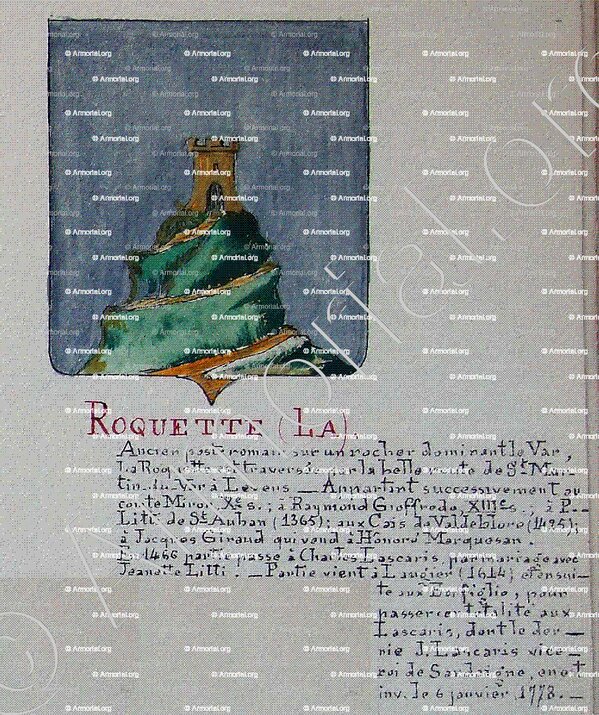 ROQUETTE (LA).
Ancien poste romain sur un rocher dominant le Var,
La Roquette est traversée par la belle route de St Mar-
tin du Var à Levens — Appartint successivement au
comte Miron Xe s.; à Raymond Gioffredo, XIIIe s.; à P.
Litti de St Auban (1365); aux Caïs de Valdeblore (1495);
à Jacques Giraud qui vend à Honoré Marquesan.
En 1466 partie passe à Charles Lascaris, par mariage avec
Jeanette Litti. — Partie vient à Laugier (1614) et ensui-
te aux pour
passer en totalité aux
Lascaris, dont le der-
nie J. Lascaris vice-
roi de Sardaigne, en et
inv. le 6 janvier 1773. —
© Armorial.org